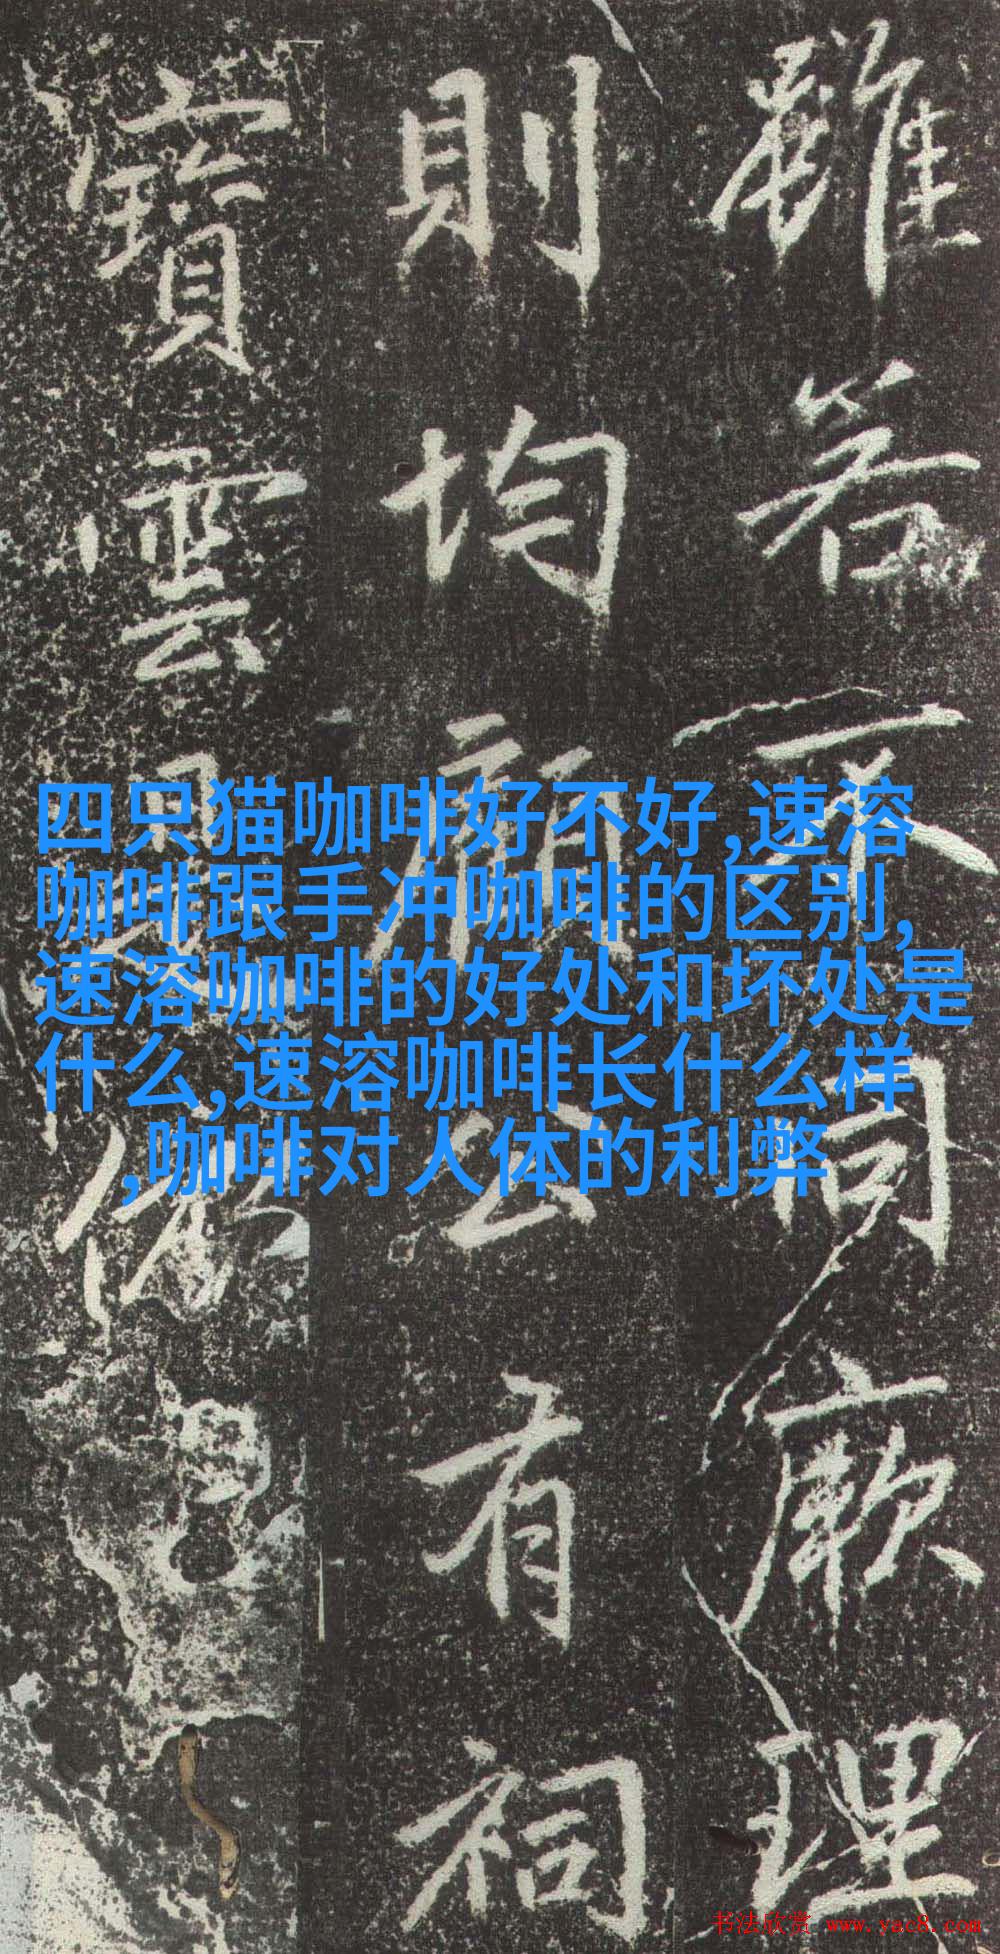 雖若不同厥理
則均顏公有祠
寶雲
四只猫咖啡好不好,速溶
咖啡跟手冲咖啡的区别,
速溶咖啡的好处和坏处是
什么,速溶咖啡长什么样
,咖啡对人体的利弊
书法欣赏 www.yac8.com